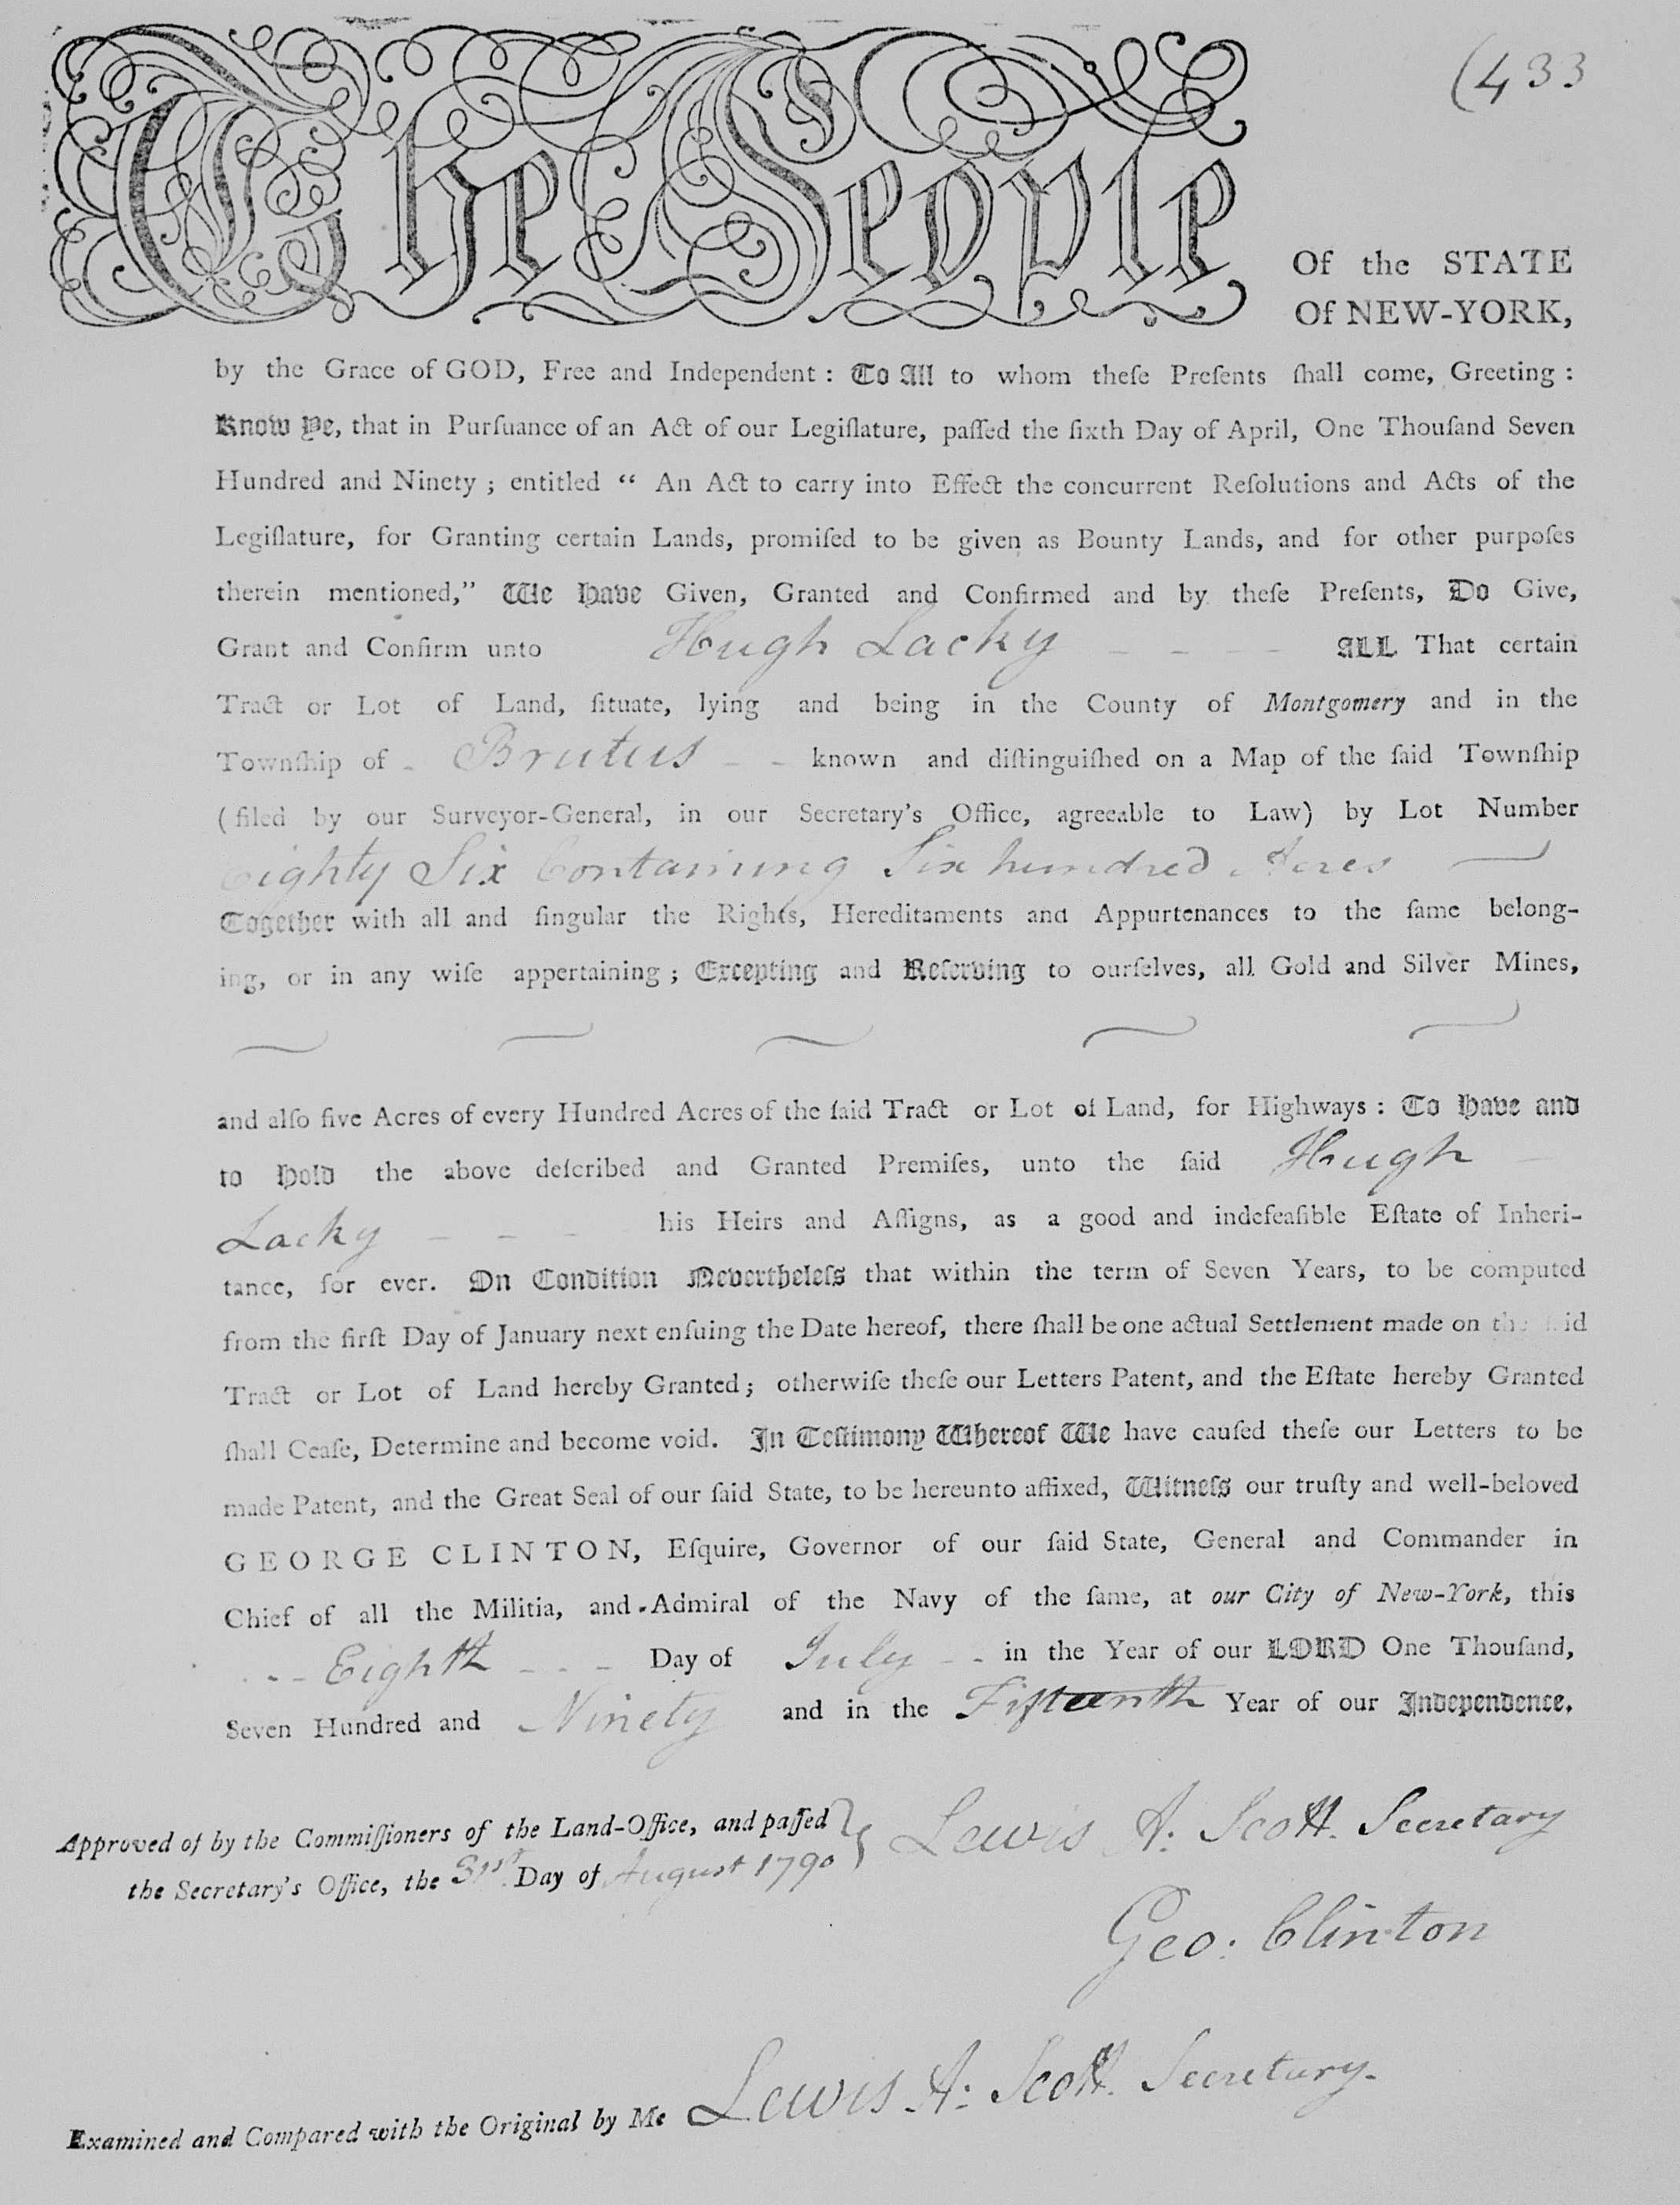 (433
The People Of the STATE
Of NEW-YORK,
by the Grace of GOD, Free and Independent : To All to whom theſe Preſents ſhall come, Greeting :
Know Ye, that in Purſuance of an Act of our Legiſlature, paſſed the ſixth Day of April, One Thouſand Seven
Hundred and Ninety ; entitled “ An Act to carry into Effect the concurrent Reſolutions and Acts of the
Legiſlature, for Granting certain Lands, promiſed to be given as Bounty Lands, and for other purpoſes
therein mentioned,” We Have Given, Granted and Confirmed and by theſe Preſents, Do Give,
Grant and Confirm unto Hugh Lacky - - - - ALL That certain
Tract or Lot of Land, ſituate, lying and being in the County of Montgomery and in the
Townſhip of - Brutus - - known and diſtinguiſhed on a Map of the ſaid Townſhip
(filed by our Surveyor-General, in our Secretary's Office, agreeable to Law) by Lot Number
Eighty Six Containing Six hundred Acres —
Together with all and ſingular the Rights, Hereditaments and Appurtenances to the ſame belong-
ing, or in any wiſe appertaining ; Excepting and Reſerving to ourſelves, all Gold and Silver Mines,
and alſo five Acres of every Hundred Acres of the ſaid Tract or Lot of Land, for Highways : To Have and
to Hold the above deſcribed and Granted Premiſes, unto the ſaid Hugh
Lacky - - - his Heirs and Aſſigns, as a good and indefeaſible Eſtate of Inheri-
tance, for ever. On Condition Nevertheleſs that within the term of Seven Years, to be computed
from the firſt Day of January next enſuing the Date hereof, there ſhall be one actual Settlement made on the ſaid
Tract or Lot of Land hereby Granted ; otherwiſe theſe our Letters Patent, and the Eſtate hereby Granted
ſhall Ceaſe, Determine and become void. In Teſtimony Whereof We have cauſed theſe our Letters to be
made Patent, and the Great Seal of our ſaid State, to be hereunto affixed, Witneſs our truſty and well-beloved
GEORGE CLINTON, Eſquire, Governor of our ſaid State, General and Commander in
Chief of all the Militia, and Admiral of the Navy of the ſame, at our City of New-York, this
- - Eighth - - - Day of July - - in the Year of our LORD One Thouſand,
Seven Hundred and Ninety and in the Fifteenth Year of our Independence.
Approved of by the Commiſſioners of the Land-Office, and paſſed } Lewis A: Scott. Secretary
the Secretary's Office, the 31st. Day of August 1790
Geo: Clinton
Examined and Compared with the Original by Me Lewis A: Scott. Secretary.